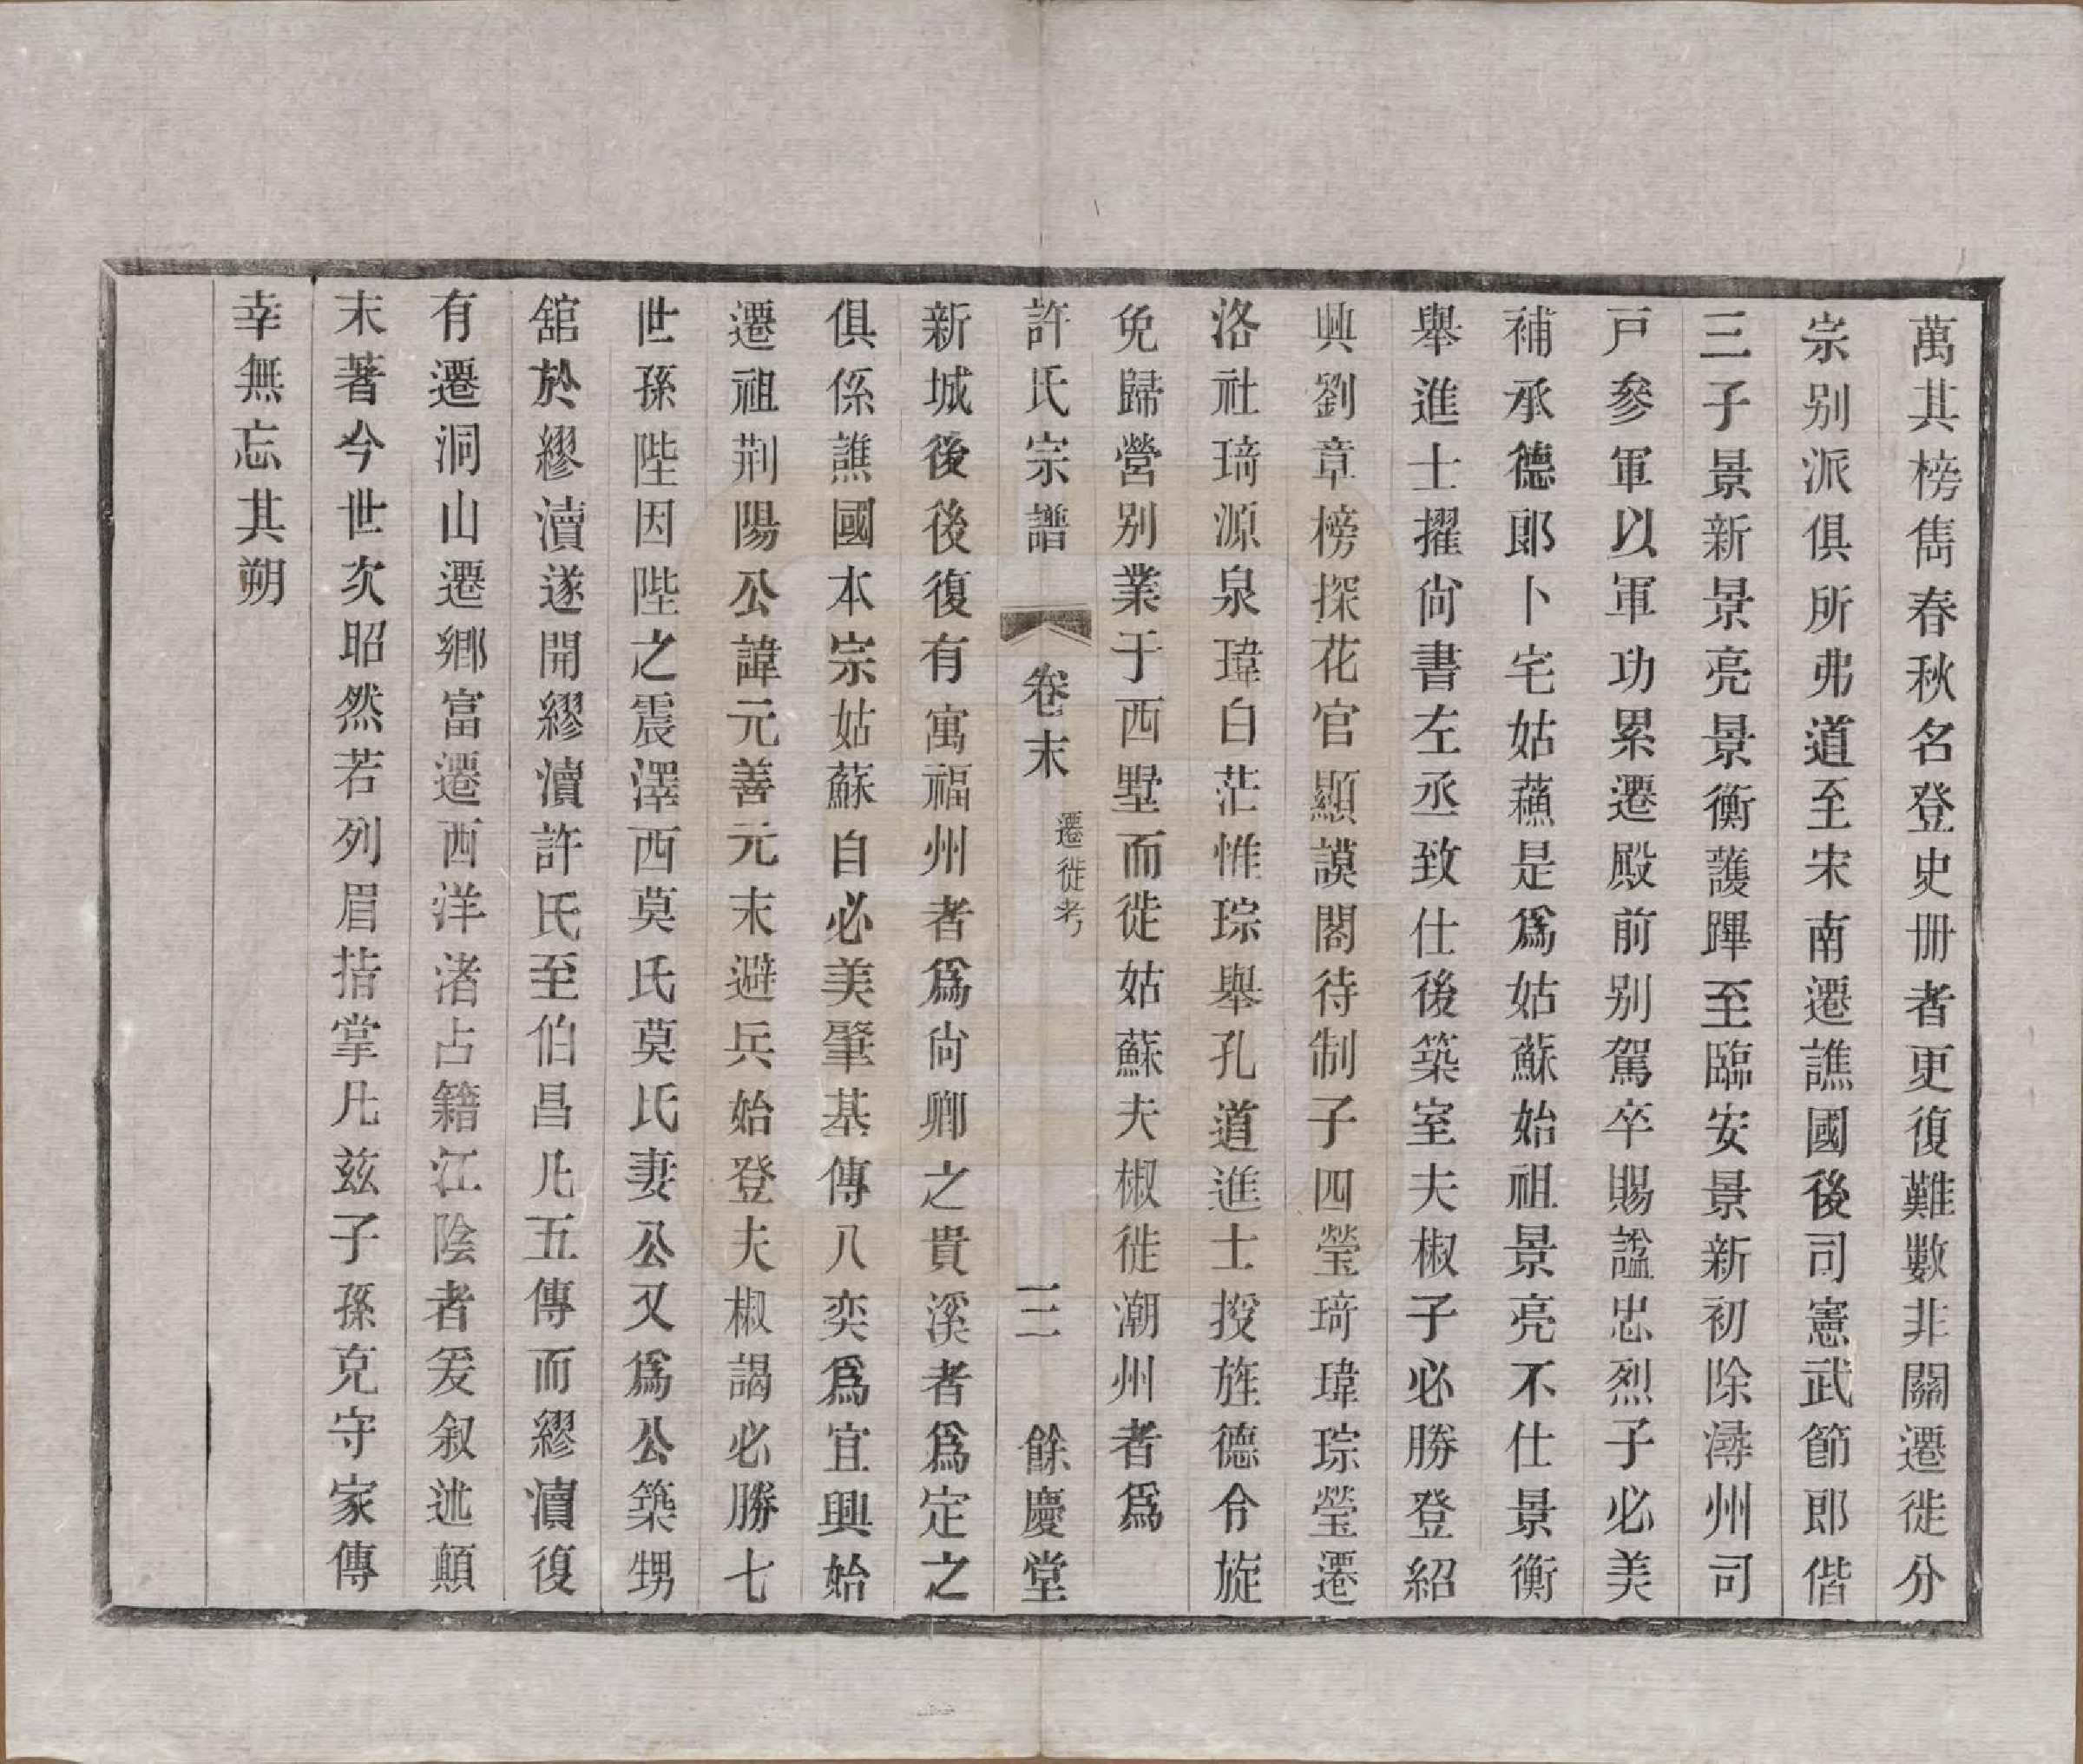 萬其榜雋春秋名登史冊者更復難數非關遷徙分
宗别派俱所弗道至宋南遷譙國後司憲武節郎偕
三子景新景亮景衡護蹕至臨安景新初除潯州司
戸參軍以軍功累遷殿前别駕卒賜諡忠烈子必美
補承德郎卜宅姑蘓是爲姑蘇始祖景亮不仕景衡
舉進士擢尙書左丞致仕後築室夫椒子必勝登紹
興劉章榜探花官顯謨閣待制子四瑩琦瑋琮瑩遷
洛社琦源泉瑋白茫惟琮舉孔道進士授旌德令旋
免歸營别業于西墅而徙姑蘇夫椒徙潮州者爲
許氏宗譜 卷末 遷徙考 三 餘慶堂
新城後後復有寓福州者爲尙卿之貴溪者爲定之
俱係譙國本宗姑蘇自必美肇基傳八奕爲宜興始
遷祖荆陽公諱元善元末避兵始登夫椒謁必勝七
世孫陛因陛之震澤西莫氏莫氏妻公又爲公築甥
舘於繆瀆遂開繆瀆許氏至伯昌凡五傳而繆瀆復
有遷洞山遷鄉富遷西洋渚占籍江陰者爰叙述顛
末著今世次昭然若列眉指掌凡茲子孫克守家傳
幸無忘其朔